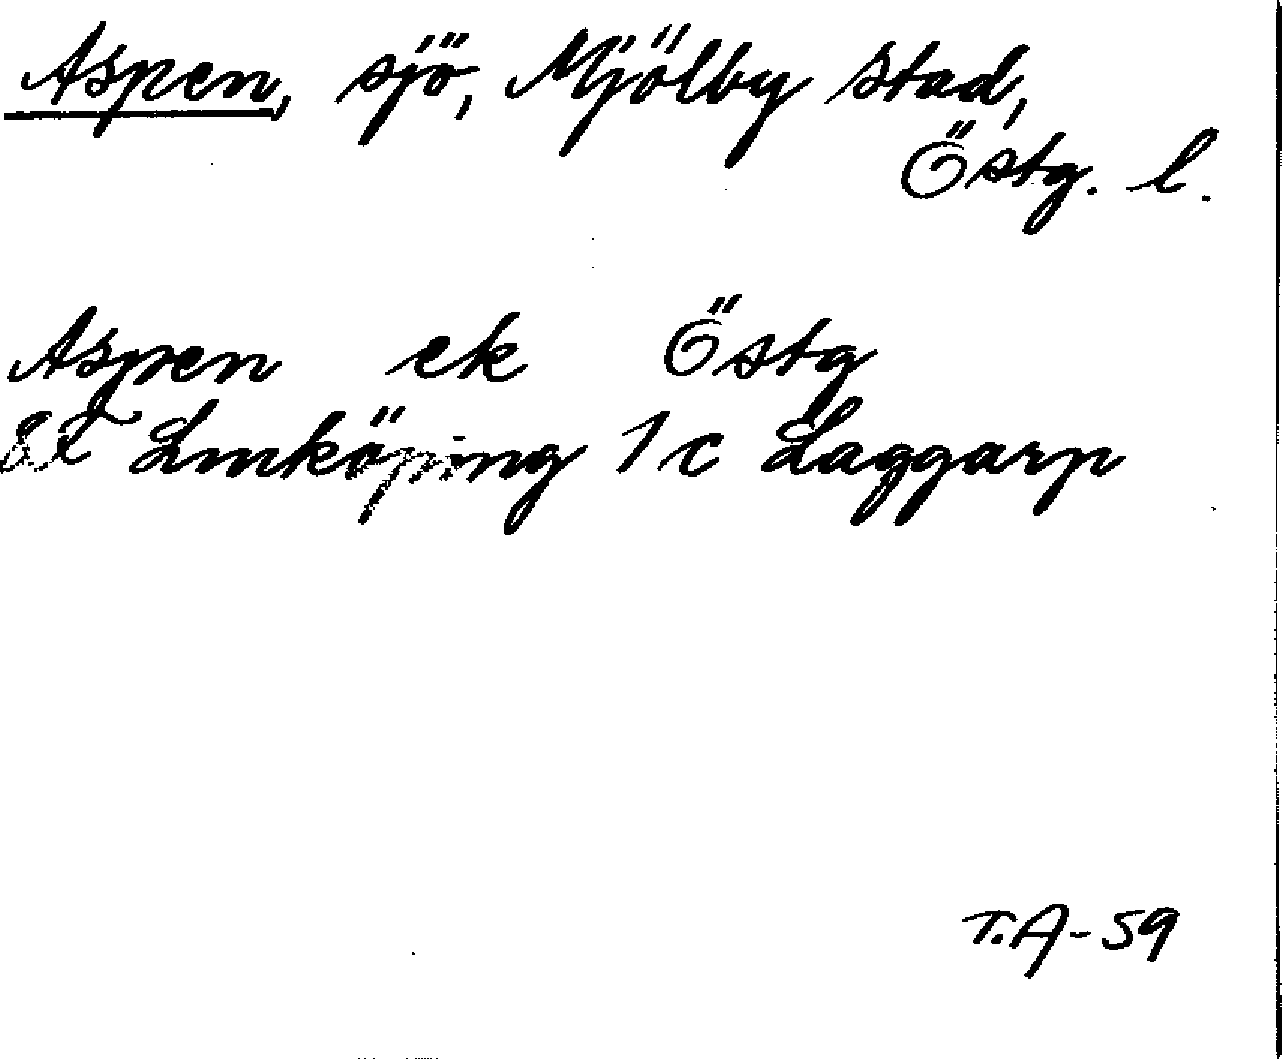 Aspen, sjö, Mjölby stad,
Östg. l.
Aspen ek Östg
8F Linköping 1c Laggarp
T.A-59